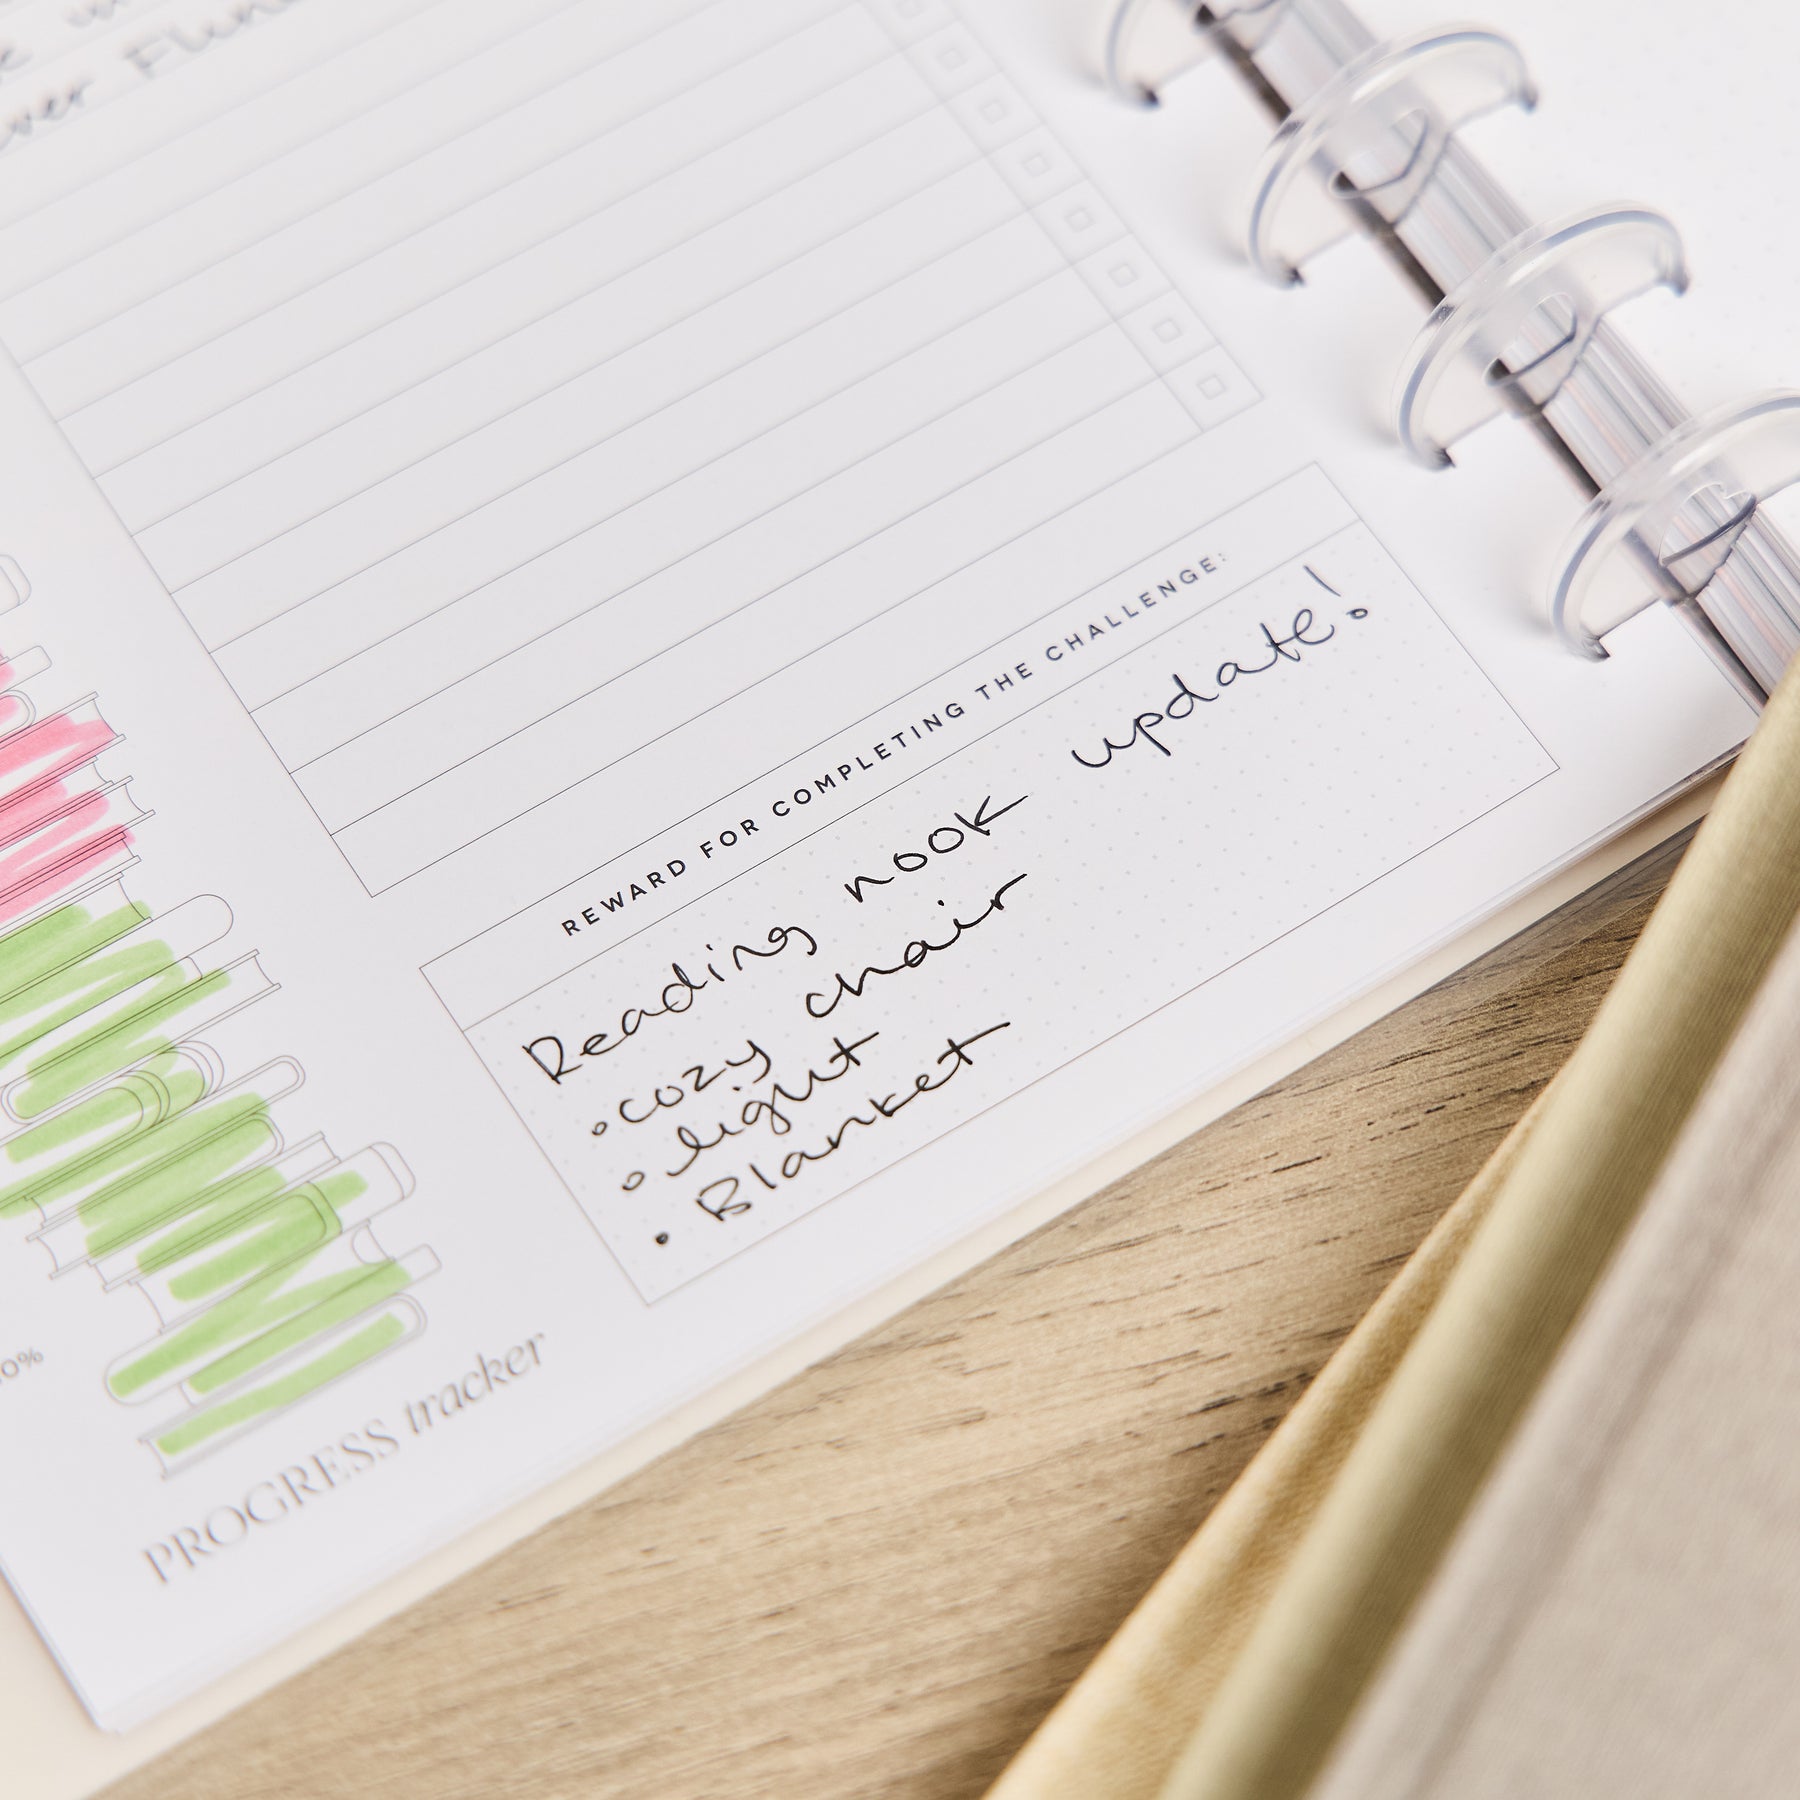 REWARD FOR COMPLETING THE CHALLENGE:
Reading nook update!
cozy chair
light
Blanket
PROGRESS tracker